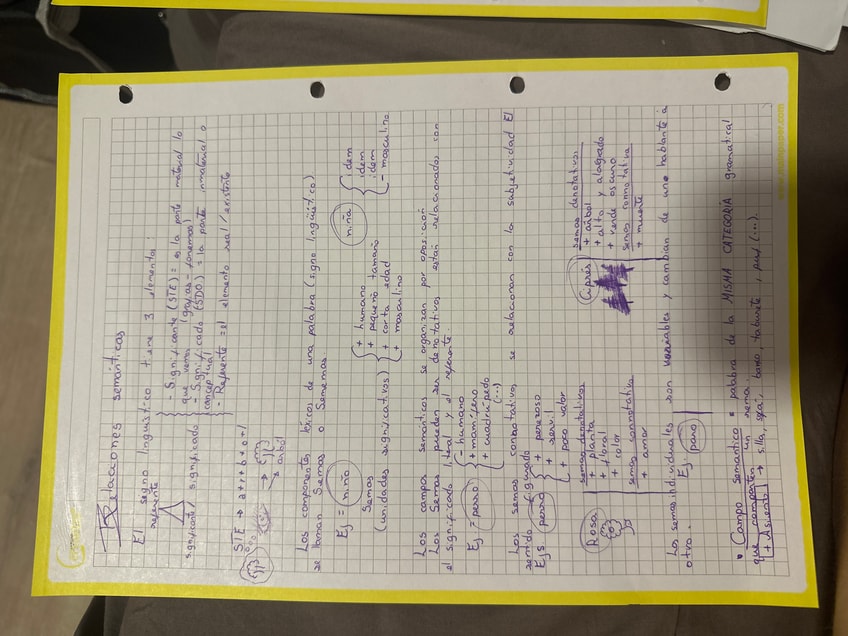 Relaciones semánticas
El signo lingüístico tiene 3 elementos
referente
significante
significado
- Significante (STE) = es la parte material lo
que vemos (grafías - fonemas)
- Significado (SDO) = la parte inmaterial o
conceptual
- Referente = el elemento real/existente
STE → a+r+b+o+l
árbol
Los componentes léxicos de una palabra (signo lingüístico)
se llaman Semas o Sememas
Ej = niño
Semas
(unidades significativas)
+ humano
+ pequeño tamaño
+ corta edad
+ masculino
niña
idem
idem
idem
- masculino
Los campos semánticos se organizan por oposición
Los Semas pueden ser denotativos, están relacionados con
el significado literal y el referente.
Ej = perro
- humano
+ mamífero
+ cuadrúpedo
(...)
Los semas connotativos, se relacionan con la subjetividad El
sentido figurado
Ejs perro
+ perezoso
+ servil
+ poco valor
Rosa
semas denotativos
+ planta
+ floral
+ color
semas connotativos
+ amor
ciprés
semas denotativos
+ árbol
+ alto y alargado
+ verde oscuro
semas connotativa
+ muerte
Los semas individuales son variables y cambian de un hablante a
otro.
Ej:
• Campo semántico = palabra de la MISMA CATEGORÍA gramatical
que comparten un sema.
+ Asiento → silla, sofá, banco, taburete, puf (...).